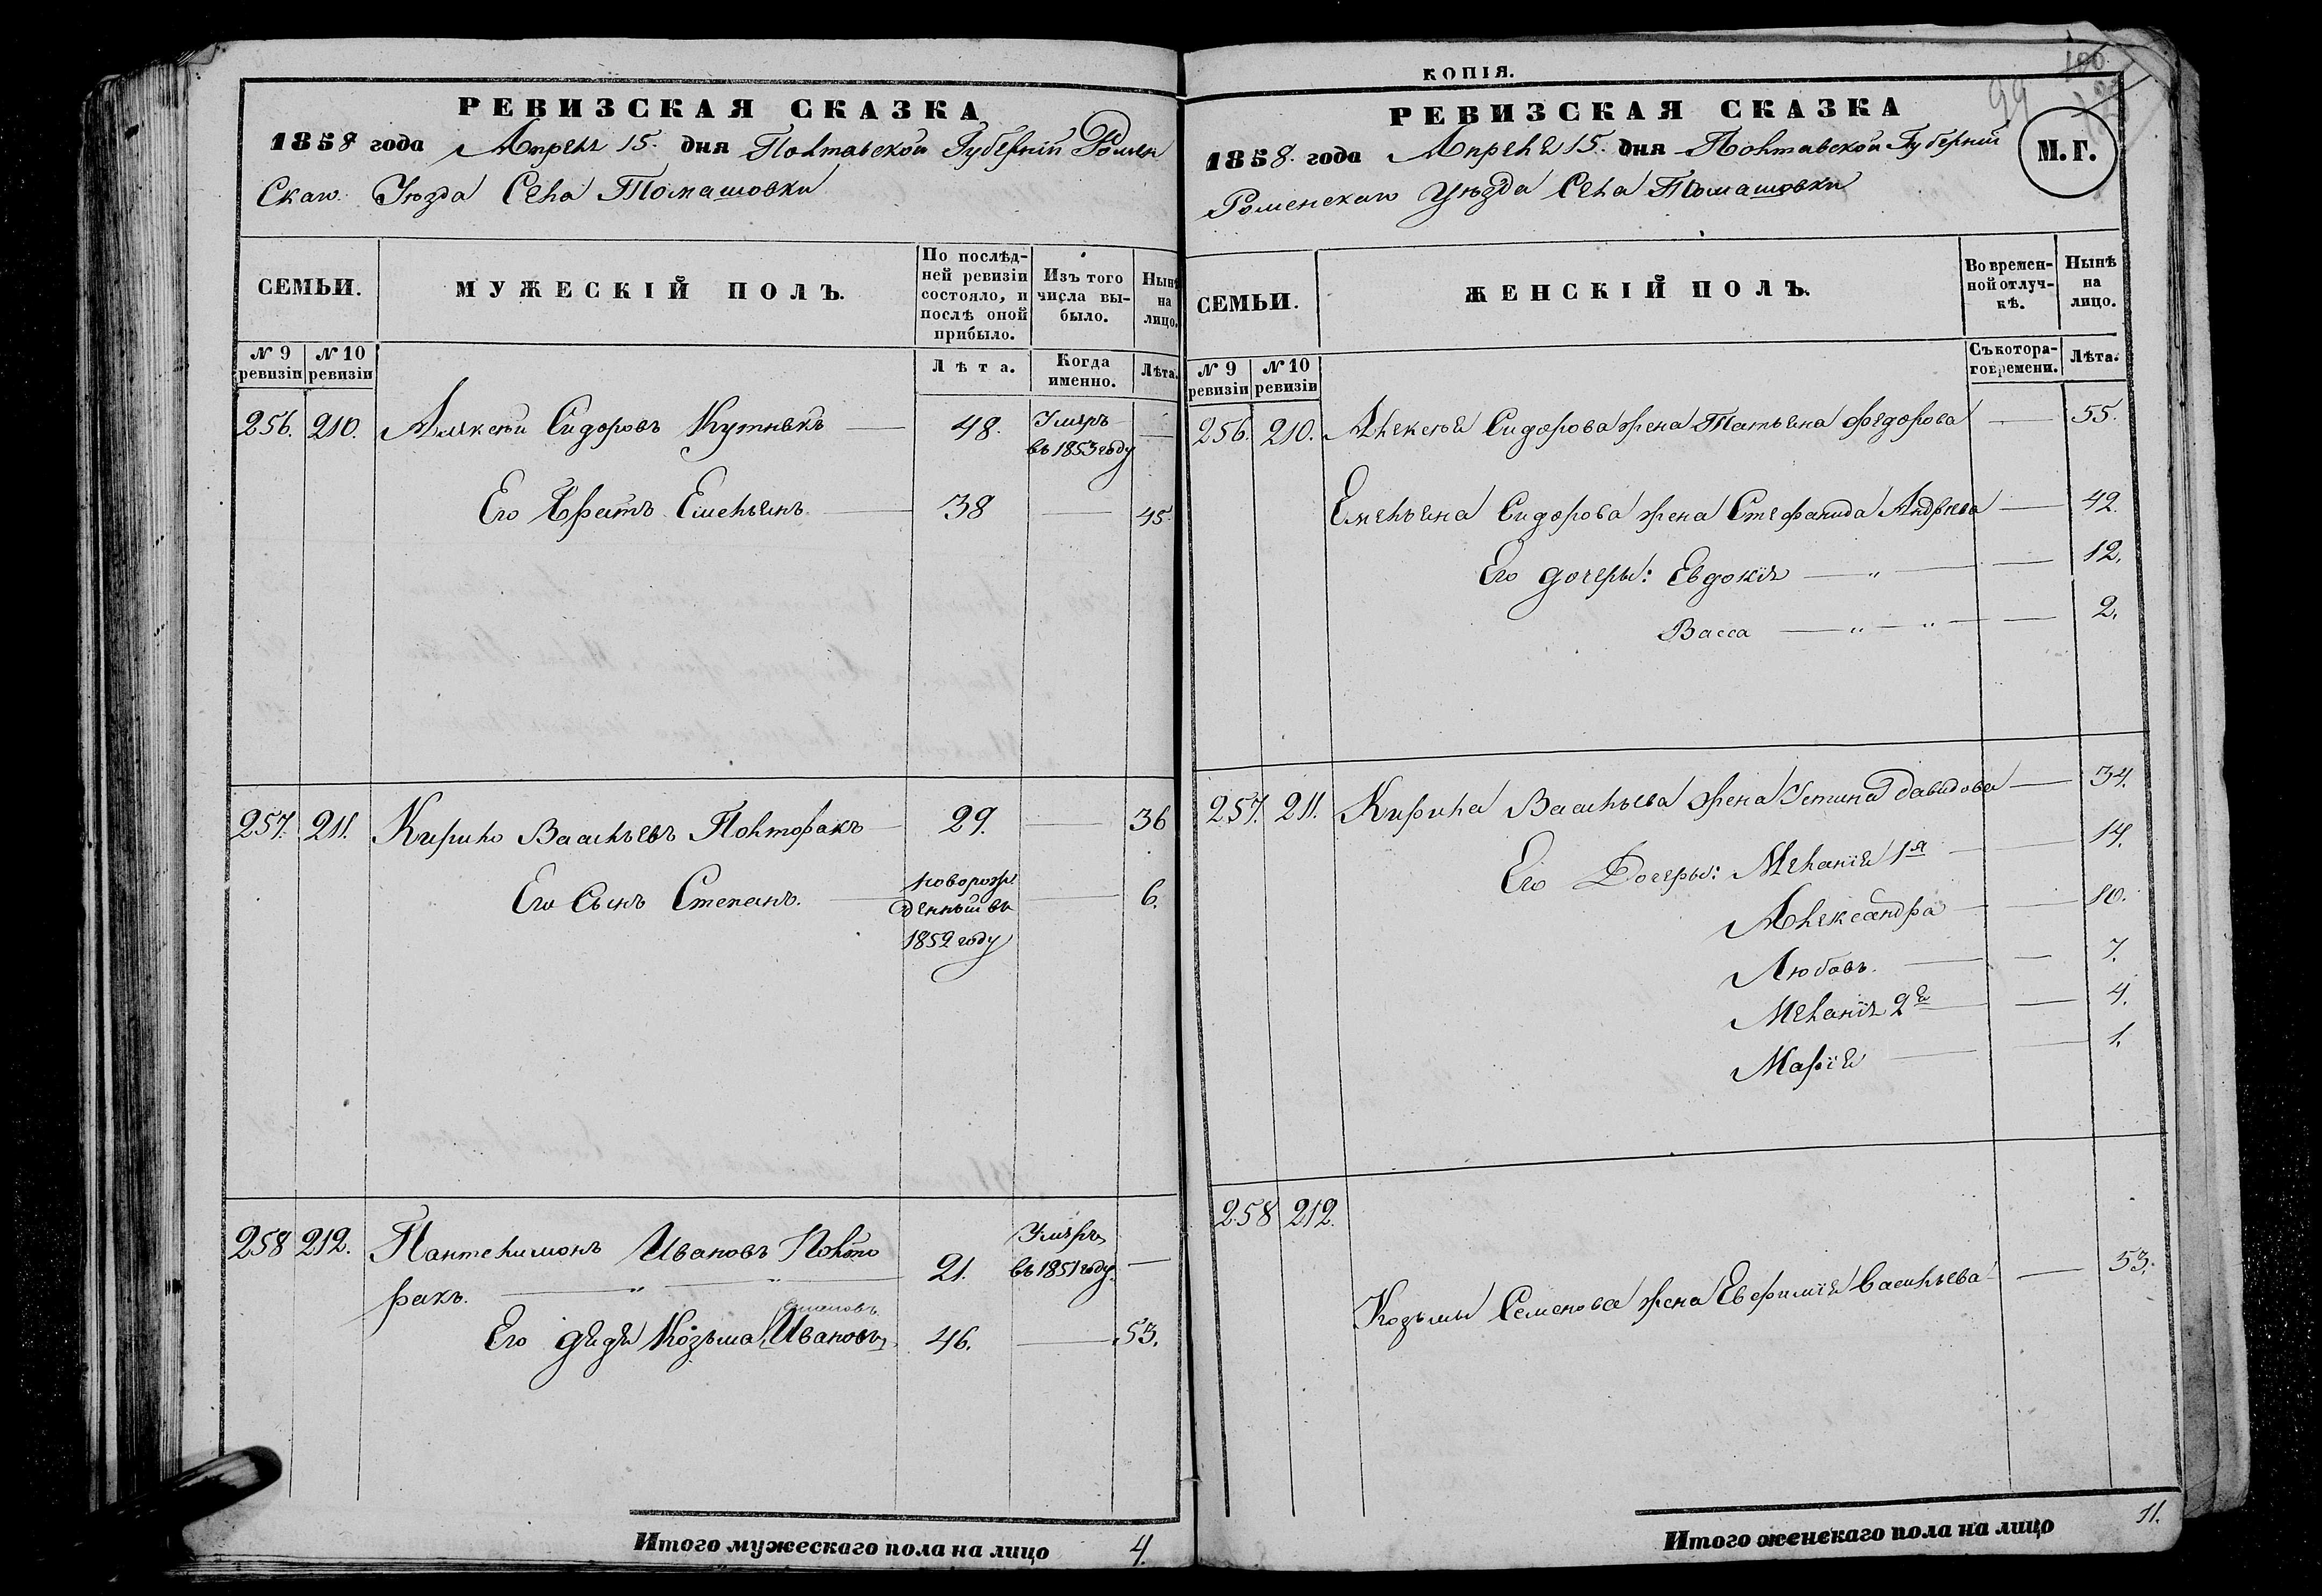 РЕВИЗСКАЯ СКАЗКА
1858 года Апреля 15. дня Полтавской Губерніи Ромен
скаго Уезда Села Томашовки
СЕМЬИ.
МУЖЕСКІЙ ПОЛЪ.
По послѣд-
ней ревизіи
состояло, и
послѣ оной
прибыло.
Изъ того
числа вы-
было.
Нынѣ
на
лицо.
№ 9 ревизіи
№ 10 ревизіи
Лѣта.
Когда
именно.
Лѣта.
256. 210. Алексей Сидоровъ Кутневъ 48. Умеръ
въ 1853 году
Его братъ Емельянъ 38 45.
257. 211. Кирило Васильевъ Полторакъ 29. 36
Его сынъ Степанъ. новорож
денный въ
1852 году
6.
258 212. Пантелимонъ Ивановъ Полто
ракъ. 21. Умеръ
въ 1851 году.
Его дядя Козьма Ивановъ 46. 53.
Итого мужескаго пола на лицо 4.
КОПІЯ.
99
100
РЕВИЗСКАЯ СКАЗКА
М. Г.
1858. года Апреля 15. дня Полтавской Губерніи
Роменскаго Уѣзда Села Томашовки
СЕМЬИ.
ЖЕНСКІЙ ПОЛЪ.
Во времен-
ной отлуч-
кѣ.
Нынѣ
на
лицо.
№ 9 ревизіи
№ 10 ревизіи
Съ котора-
го времени.
Лѣта.
256. 210. Алексея Сидорова жена Татьяна Федорова 55.
Емельяна Сидорова жена Стефанида Андреева 42.
Его дочеры: Евдокія 12.
Васса 2.
257. 211. Кирила Васильева жена Устина Давидова 34.
Его Дочеры: Меланія 1я 14.
Александра 10.
Любовь. 7.
Меланія 2я 4.
Марія 1.
258 212.
Козьмы Семенова жена Евфимія Васильева 53.
Итого женскаго пола на лицо 11.